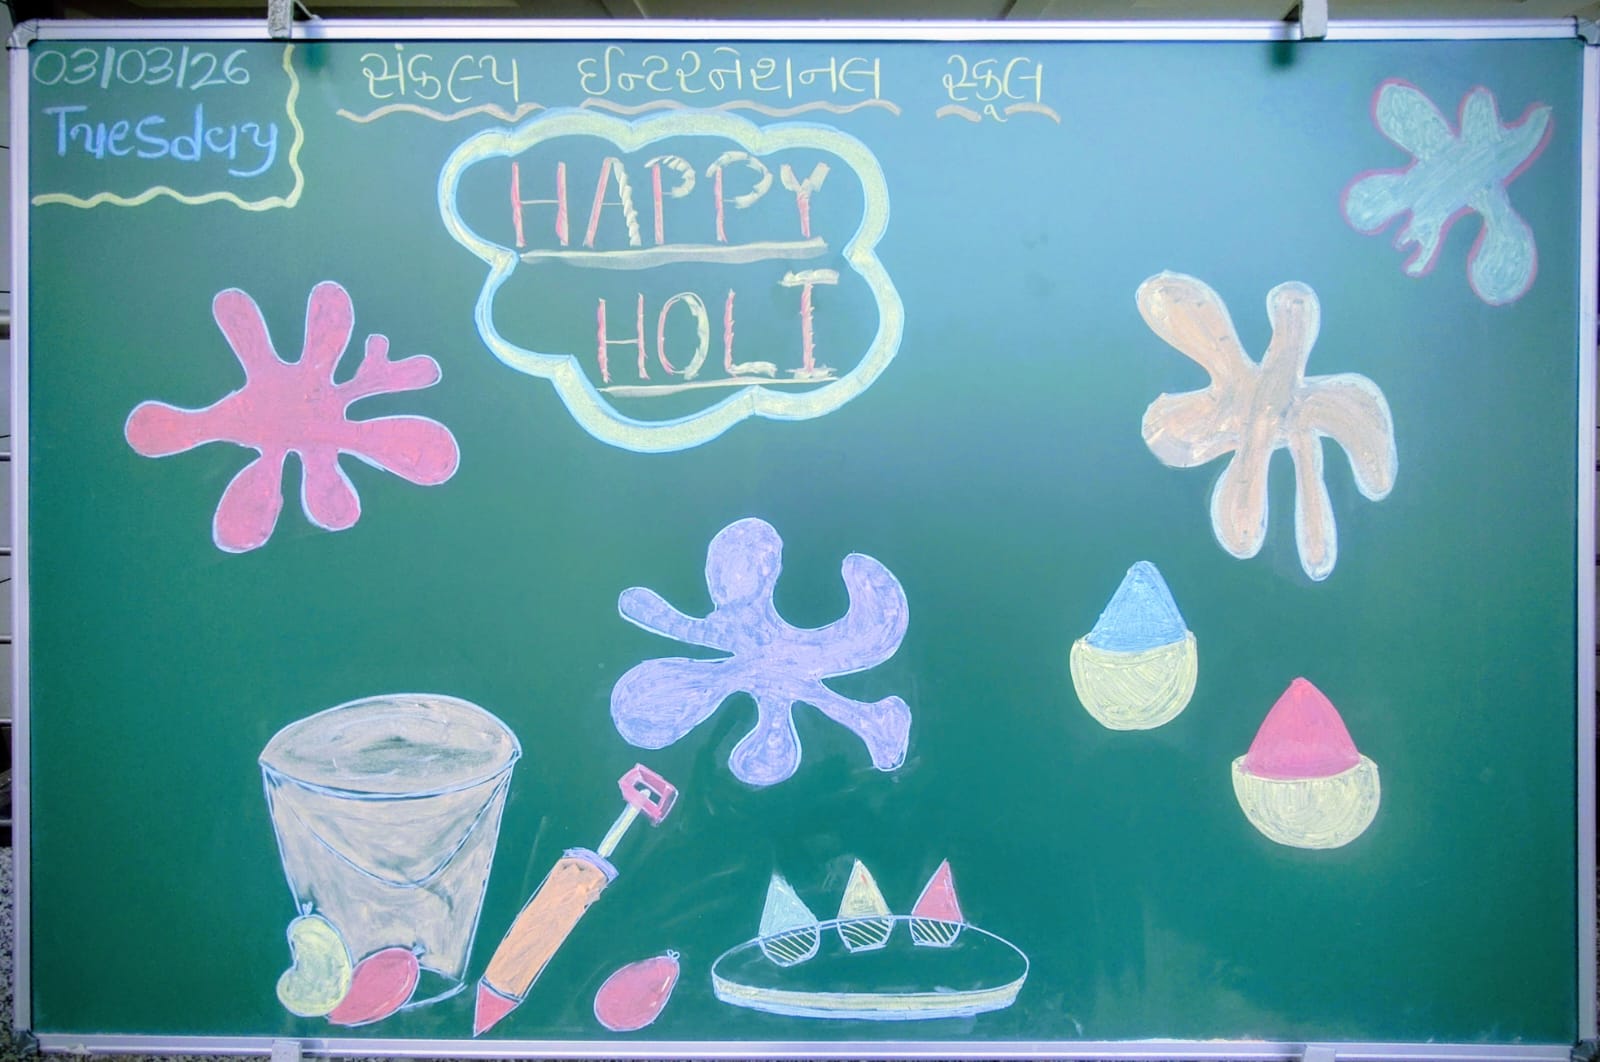 03/03/26
Tuesday
સંકલ્પ ઈન્ટરનેશનલ સ્કૂલ
HAPPY
HOLI